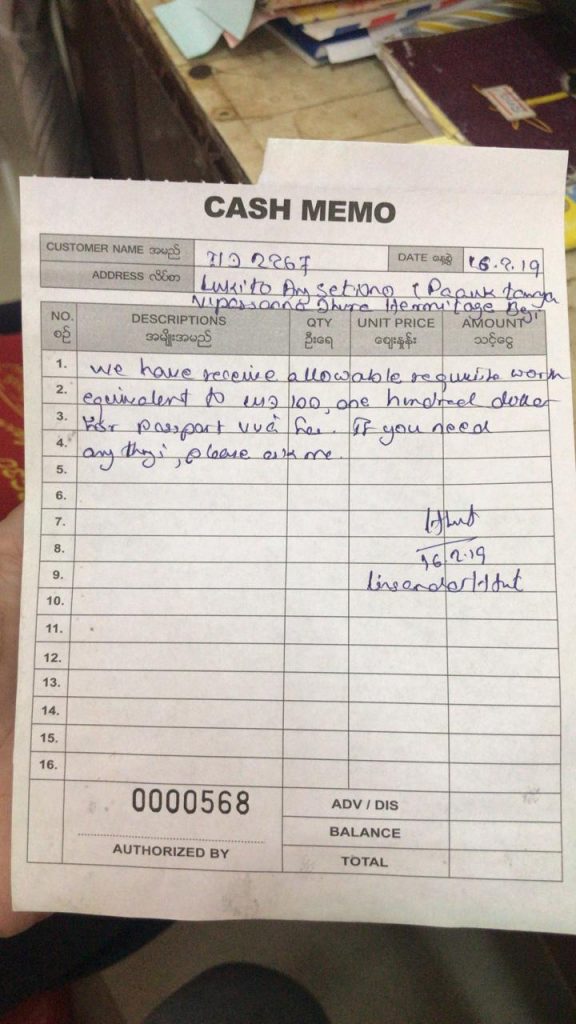 CASH MEMO
CUSTOMER NAME အမည် 2267 DATE နေ့စွဲ 16.2.19
ADDRESS လိပ်စာ Lukito
Hermitage
NO. စဉ် DESCRIPTIONS အမျိုးအမည် QTY ဦးရေ UNIT PRICE ဈေးနှုန်း AMOUNT သင့်ငွေ
1. we have receive allowable requisite worth
2. equivalent to 100, one hundred dollar
3. For passport fee. If you need
4. any thing, please ask me.
5.
6.
7.
8. 16.2.19
9.
10.
11.
12.
13.
14.
15.
16.
0000568 ADV / DIS
BALANCE
AUTHORIZED BY TOTAL